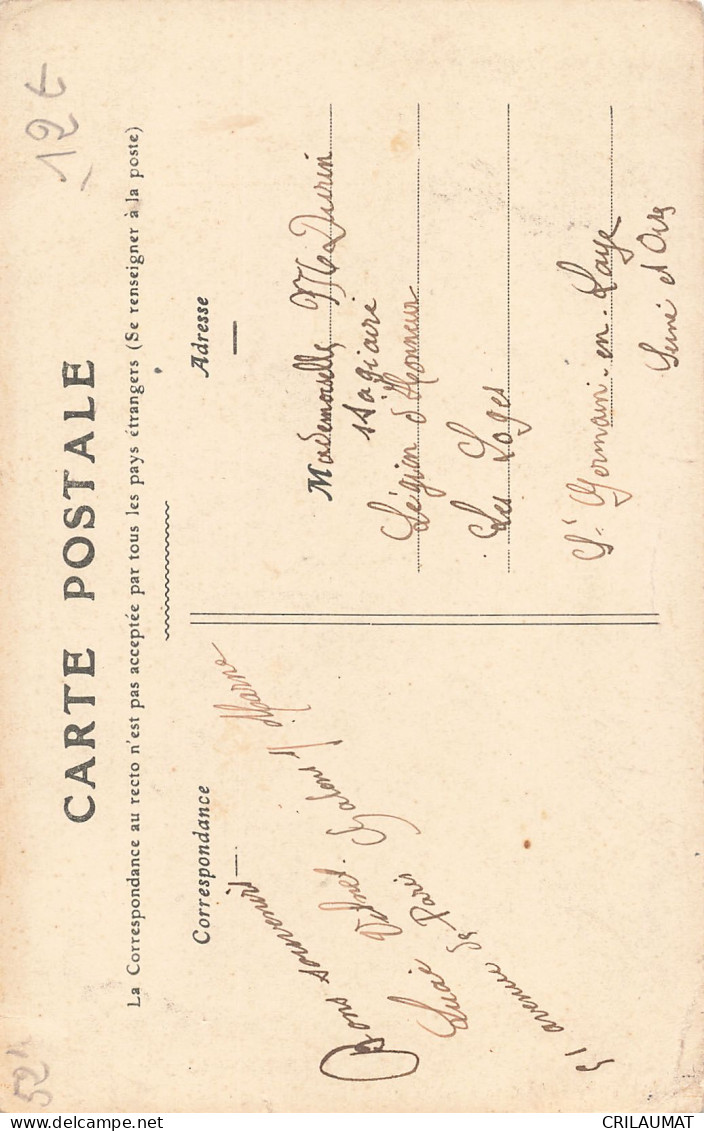 12 €
52
CARTE POSTALE
La Correspondance au recto n'est pas acceptée par tous les pays étrangers (Se renseigner à la poste)
Correspondance
Bons souvenirs
Châlons s/ Marne
Lucie
51 avenue de Paris
Adresse
Mademoiselle M Durin
stagiaire
Légion d'Honneur
Les Loges
St Germain-en-Laye
Seine et Oise
CRILAUMAT